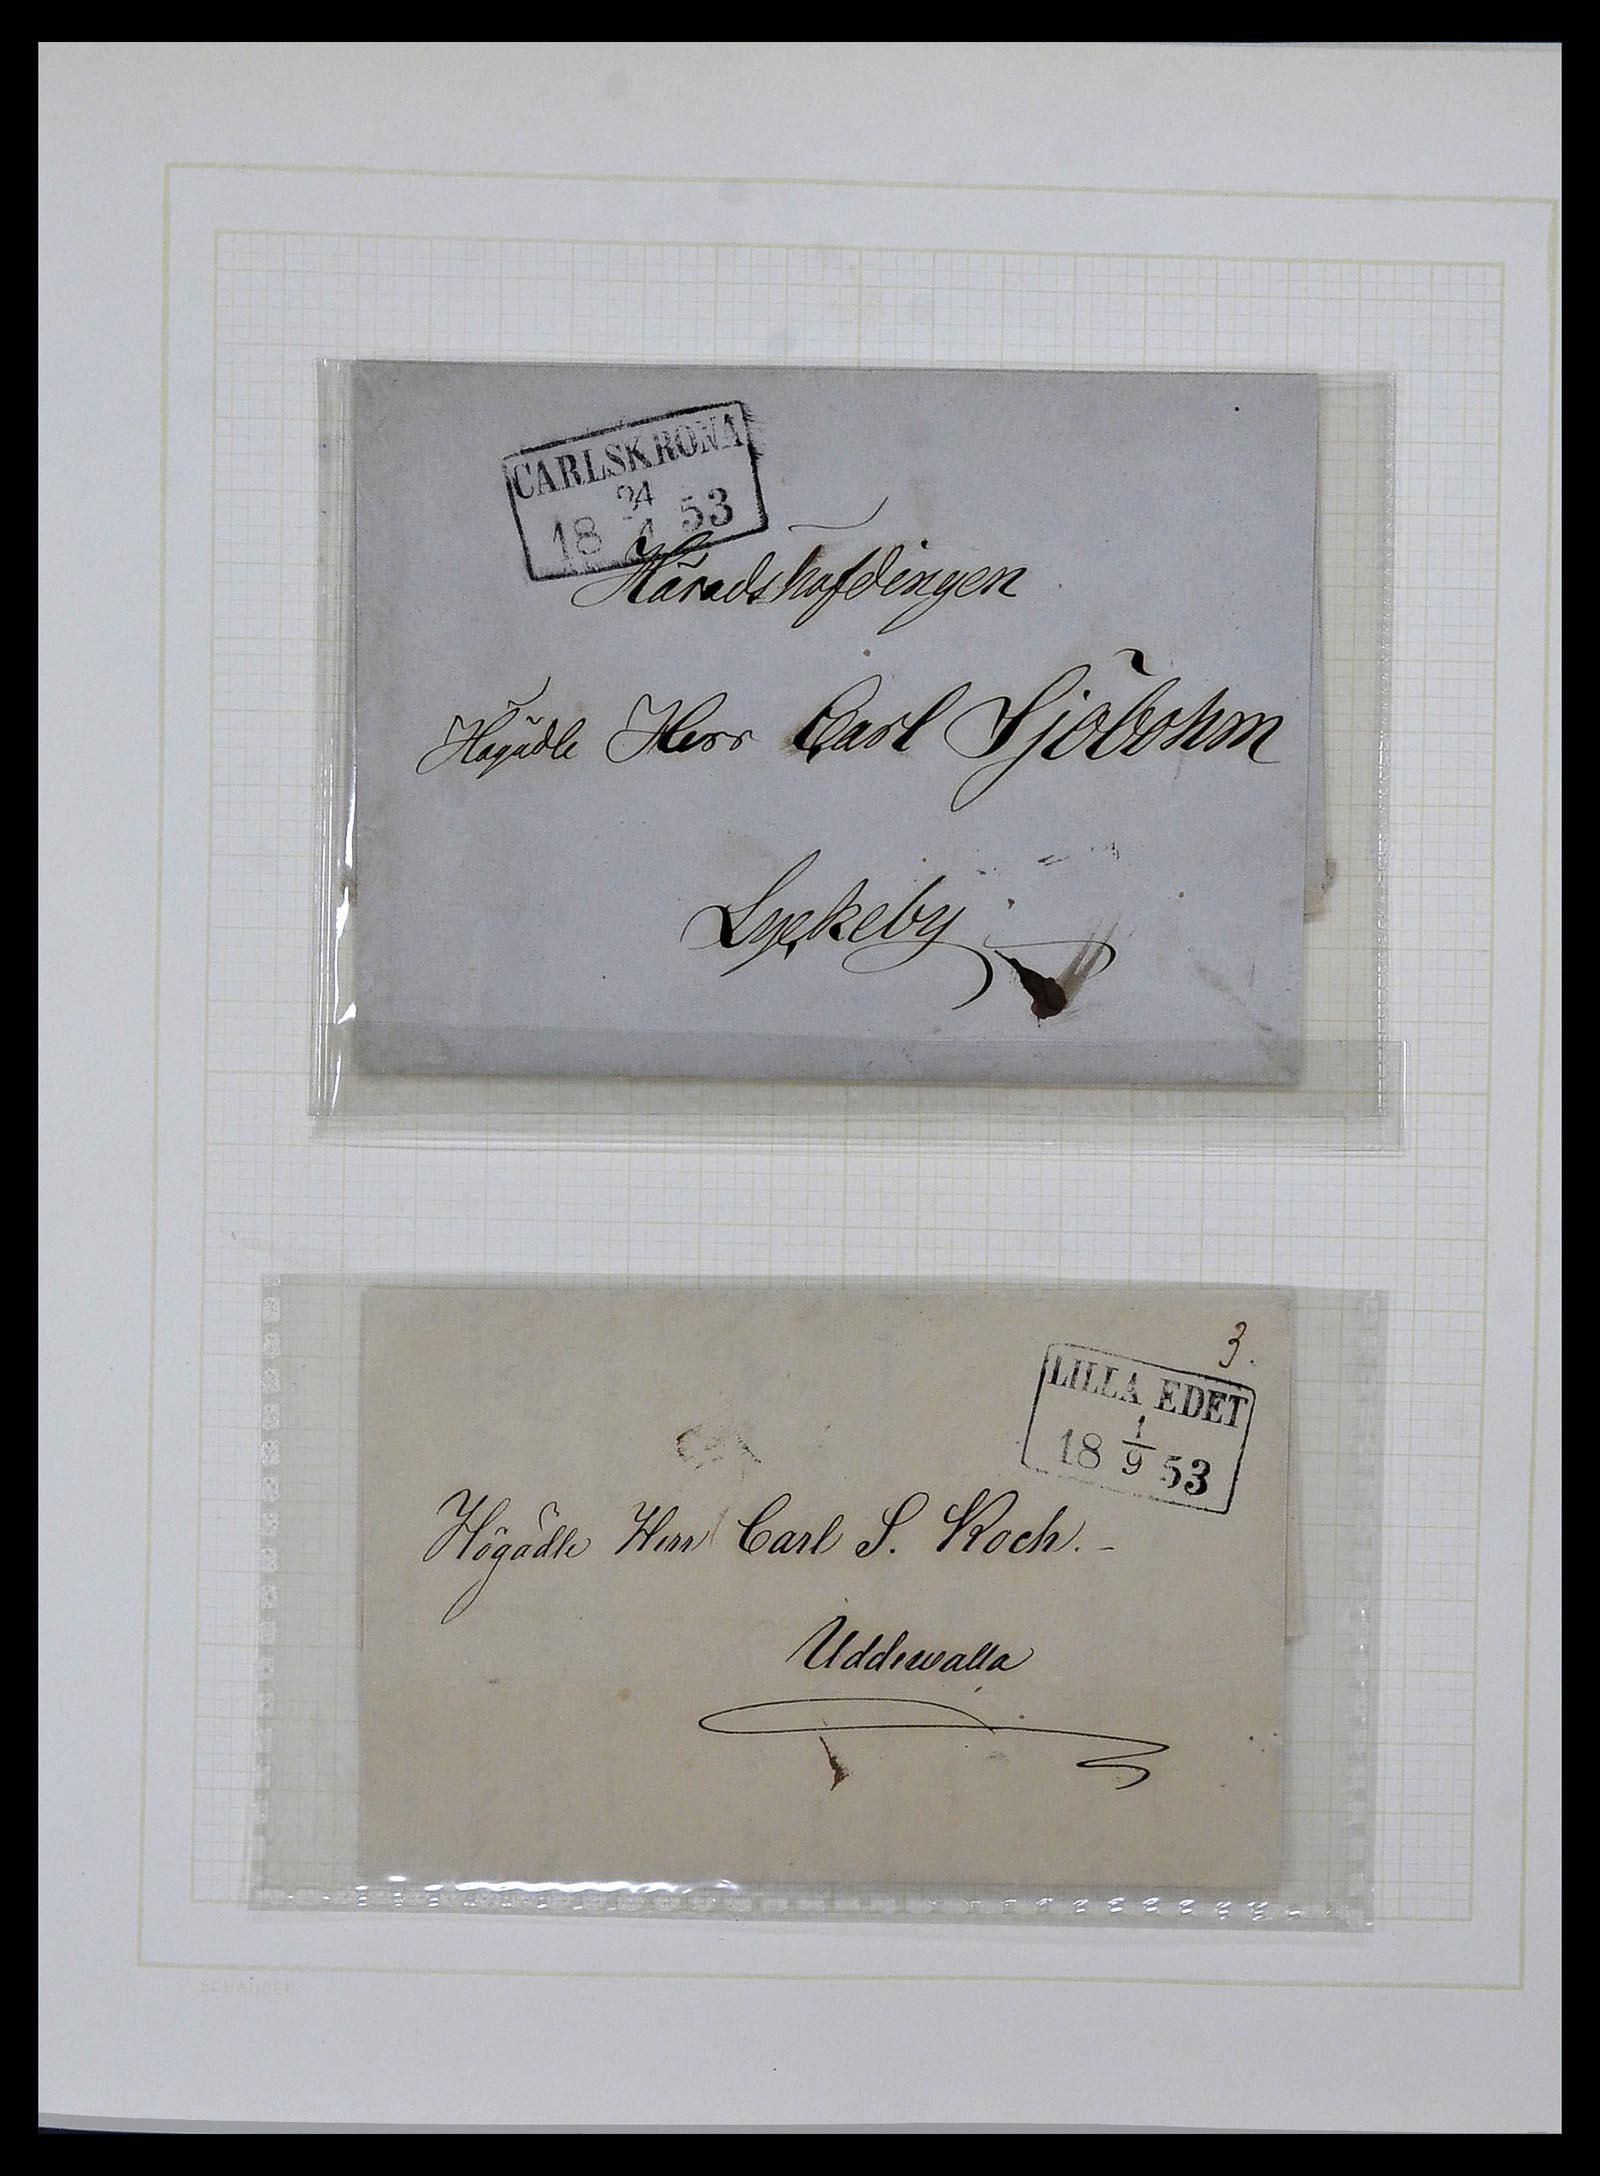 CARLSKRONA
18 24 53
Häradshöfdingen
Högädle Herr Carl Sjöbohm
Lyckeby
3.
LILLA EDET
18 1/9 53
Högädle Herr Carl S. Koch.-
Uddewalla
SCHAUBEK